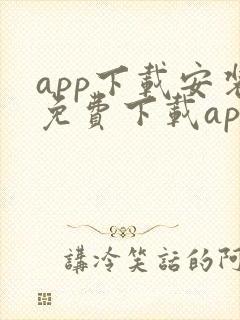 app下載安裝
免費下載ap
講冷笑話的阿